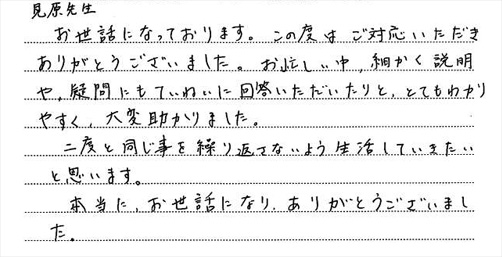 見原先生
お世話になっております。この度はご対応いただき
ありがとうございました。お忙しい中、細かく説明
や、疑問にもていねいに回答いただいたりと、とてもわかり
やすく、大変助かりました。
二度と同じ事を繰り返さないよう生活していきたい
と思います。
本当に、お世話になり、ありがとうございまし
た。